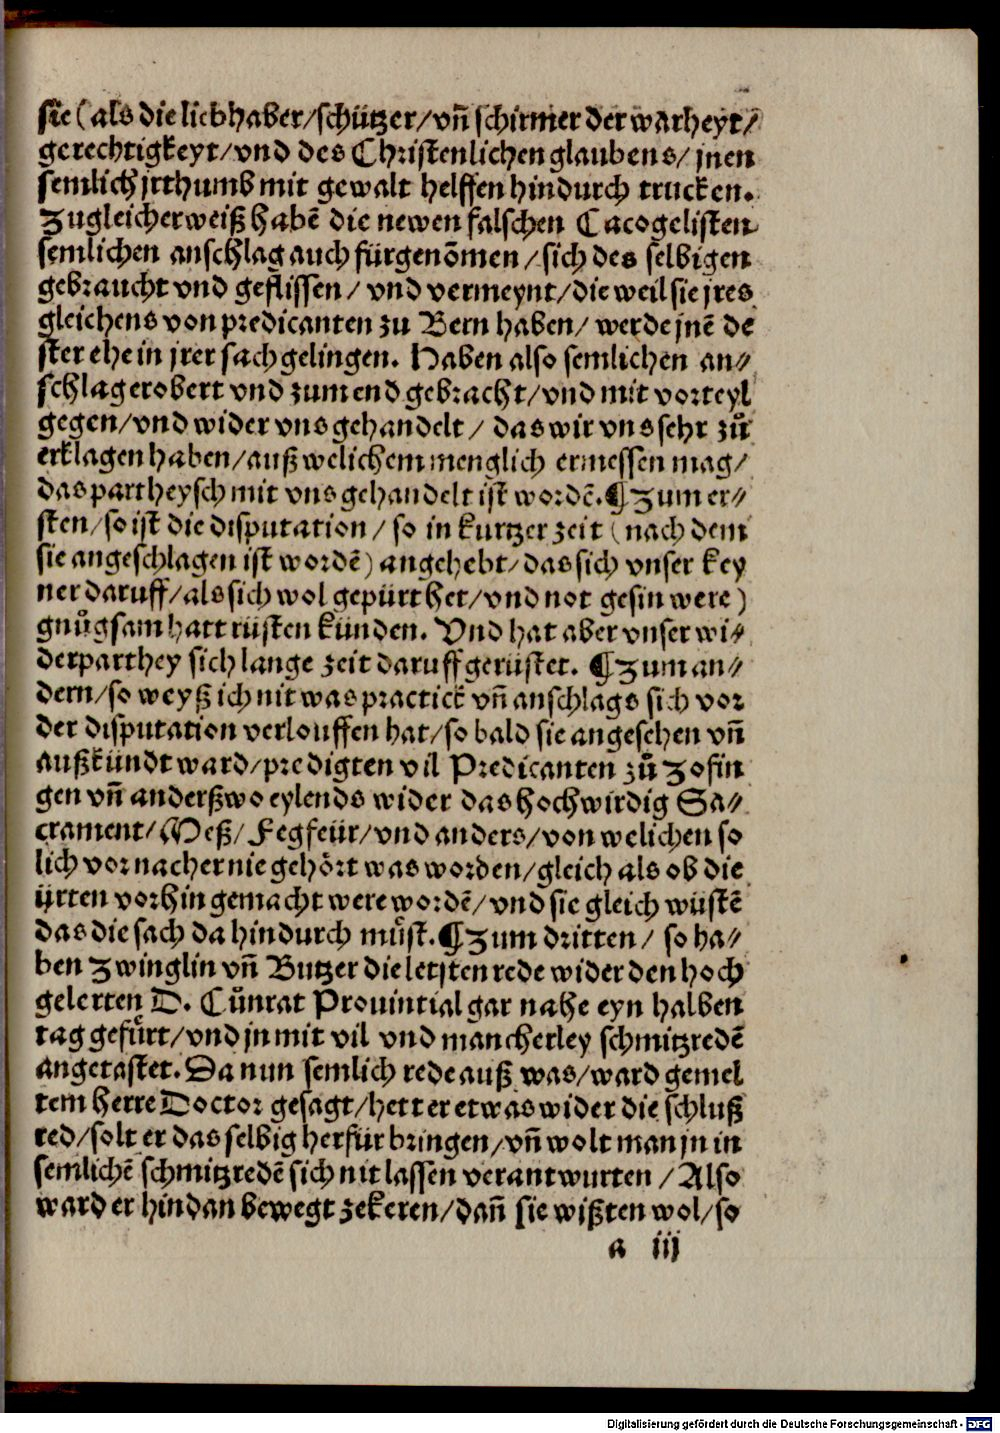 sie (als die liebhaber/schützer/vñ schirmer der warheyt/
gerechtigkeyt/vnd des Christenlichen glaubens/ jnen
semlich jrthumb mit gewalt helffen hindurch trucken.
Zu gleicher weiß habē die newen falschen Cacogelisten
semlichen anschlag auch fürgenōmen/sich des selbigen
gebraucht vnd geflissen/ vnd vermeynt/die weil sie jres
gleichens von predicanten zu Bern haben/ werde jnē de
ster ehe in jrer sach gelingen. Haben also semlichen an⸗
schlag erobert vnd zum end gebracht/vnd mit vorteyl
gegen/vnd wider vns gehandelt/ das wir vns sehr zů
erklagen haben/auß welichem menglich ermessen mag/
das partheysch mit vns gehandelt ist wordē. ¶Zum er⸗
sten/so ist die disputation/ so in kurtzer zeit (nach dem
sie angeschlagen ist wordē) angehebt/das sich vnser key
ner daruff/als sich wol gepürt het/vnd not gesin were)
gnůgsam hatt rüsten künden. Vnd hat aber vnser wi⸗
derparthey sich lange zeit daruff gerüstet. ¶Zum an⸗
dern/so weyß ich nit was practick vñ anschlags sich vor
der disputation verlouffen hat/so bald sie angesehen vñ
außkündt ward/predigten vil Predicanten zů Zofin
gen vñ anderßwo eylends wider das hochwirdig Sa⸗
crament/Meß/ Fegfeür/vnd anders/von welichen so
lich vor nacher nie gehört was worden/gleich als ob die
ürten vorhin gemacht were wordē/vnd sie gleich wüstē
das die sach da hindurch můst. ¶Zum dritten/ so ha⸗
ben Zwinglin vñ Butzer die letsten rede wider den hoch
gelerten D. Cůnrat Prouintial gar nahe eyn halben
tag gefürt/vnd jn mit vil vnd mancherley schmitzredē
angetastet. Da nun semlich rede auß was/ward gemel
tem herre Doctor gesagt/hett er etwas wider die schluß
red/solt er das selbig herfür bringen/vñ wolt man jn in
semlichē schmitzredē sich nit lassen verantwurten/Also
ward er hindan bewegt zekeren/dañ sie wißten wol/so
a iij
Digitalisierung gefördert durch die Deutsche Forschungsgemeinschaft - DFG